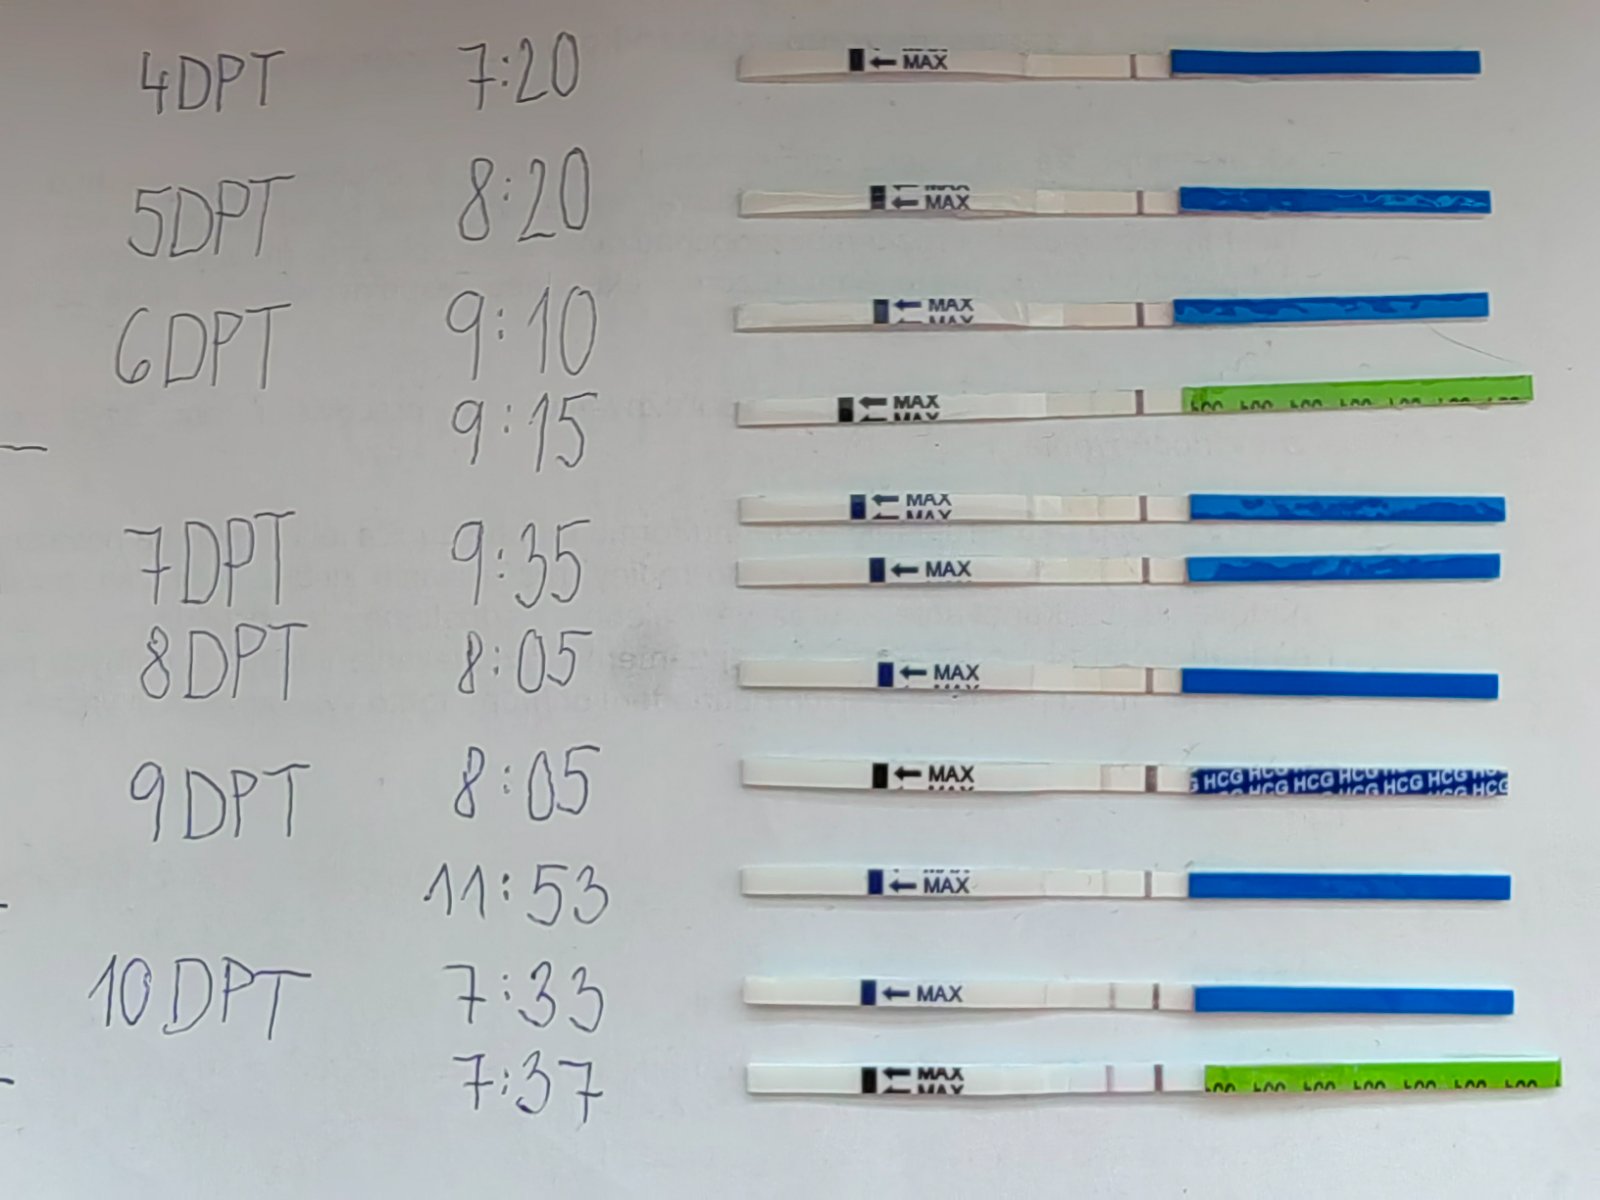 4DPT 7:20 MAX
5DPT 8:20 MAX MAX
6DPT 9:10 MAX MAX
9:15 MAX MAX
7DPT 9:35 MAX MAX
MAX
8DPT 8:05 MAX
9DPT 8:05 MAX HCG HCG HCG HCG HCG HCG
11:53 MAX
10DPT 7:33 MAX
7:37 MAX MAX